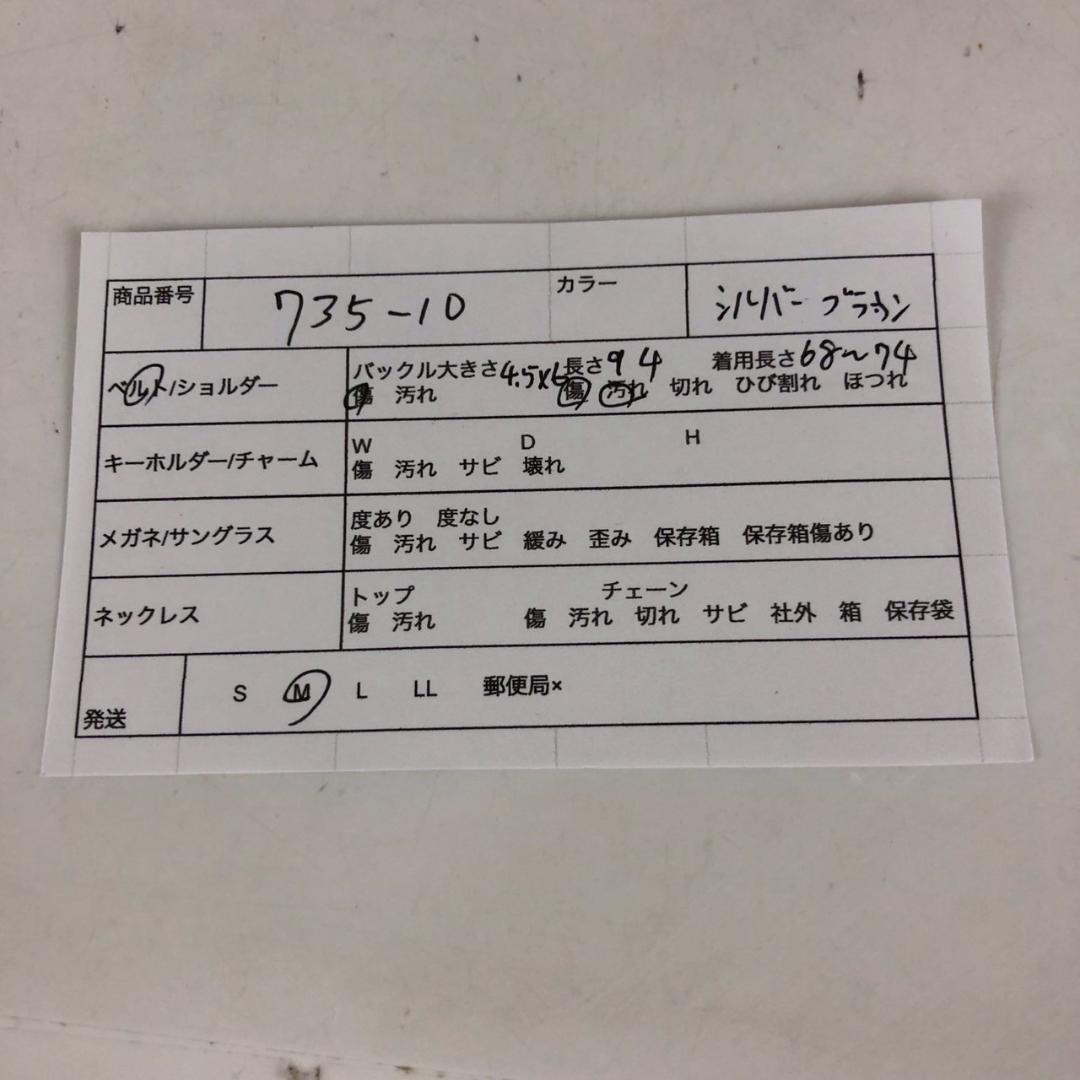 商品番号 735-10 カラー シルバー ブラウン
ベルト/ショルダー バックル大きさ 4.5×6 長さ 94 着用長さ 68〜74
傷 汚れ 傷 汚れ 切れ ひび割れ ほつれ
キーホルダー/チャーム W D H
傷 汚れ サビ 壊れ
メガネ/サングラス 度あり 度なし
傷 汚れ サビ 緩み 歪み 保存箱 保存箱傷あり
ネックレス トップ チェーン
傷 汚れ 傷 汚れ 切れ サビ 社外 箱 保存袋
発送 S M L LL 郵便局×